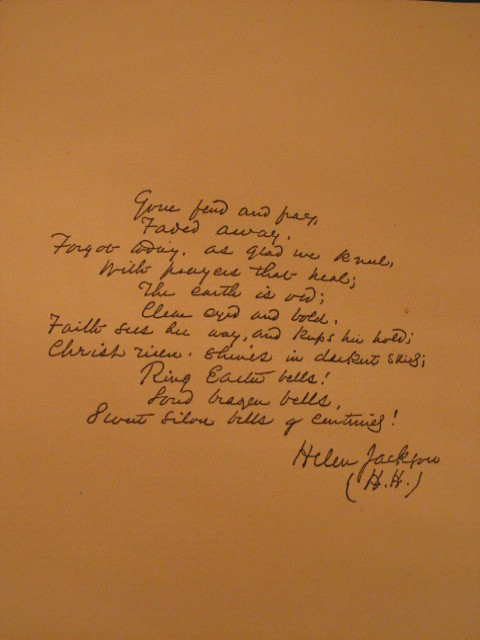 Gone feud and fray,
Faded away,
Forgot today, as glad we kneel,
With prayers that heal;
The earth is old;
Clear eyed and bold,
Faith sees her way, and keeps her hold;
Christ risen. shines in darkest skies;
Ring Easter bells!
Loud brazen bells,
Sweet silver bells of centuries!
Helen Jackson
(H.H.)